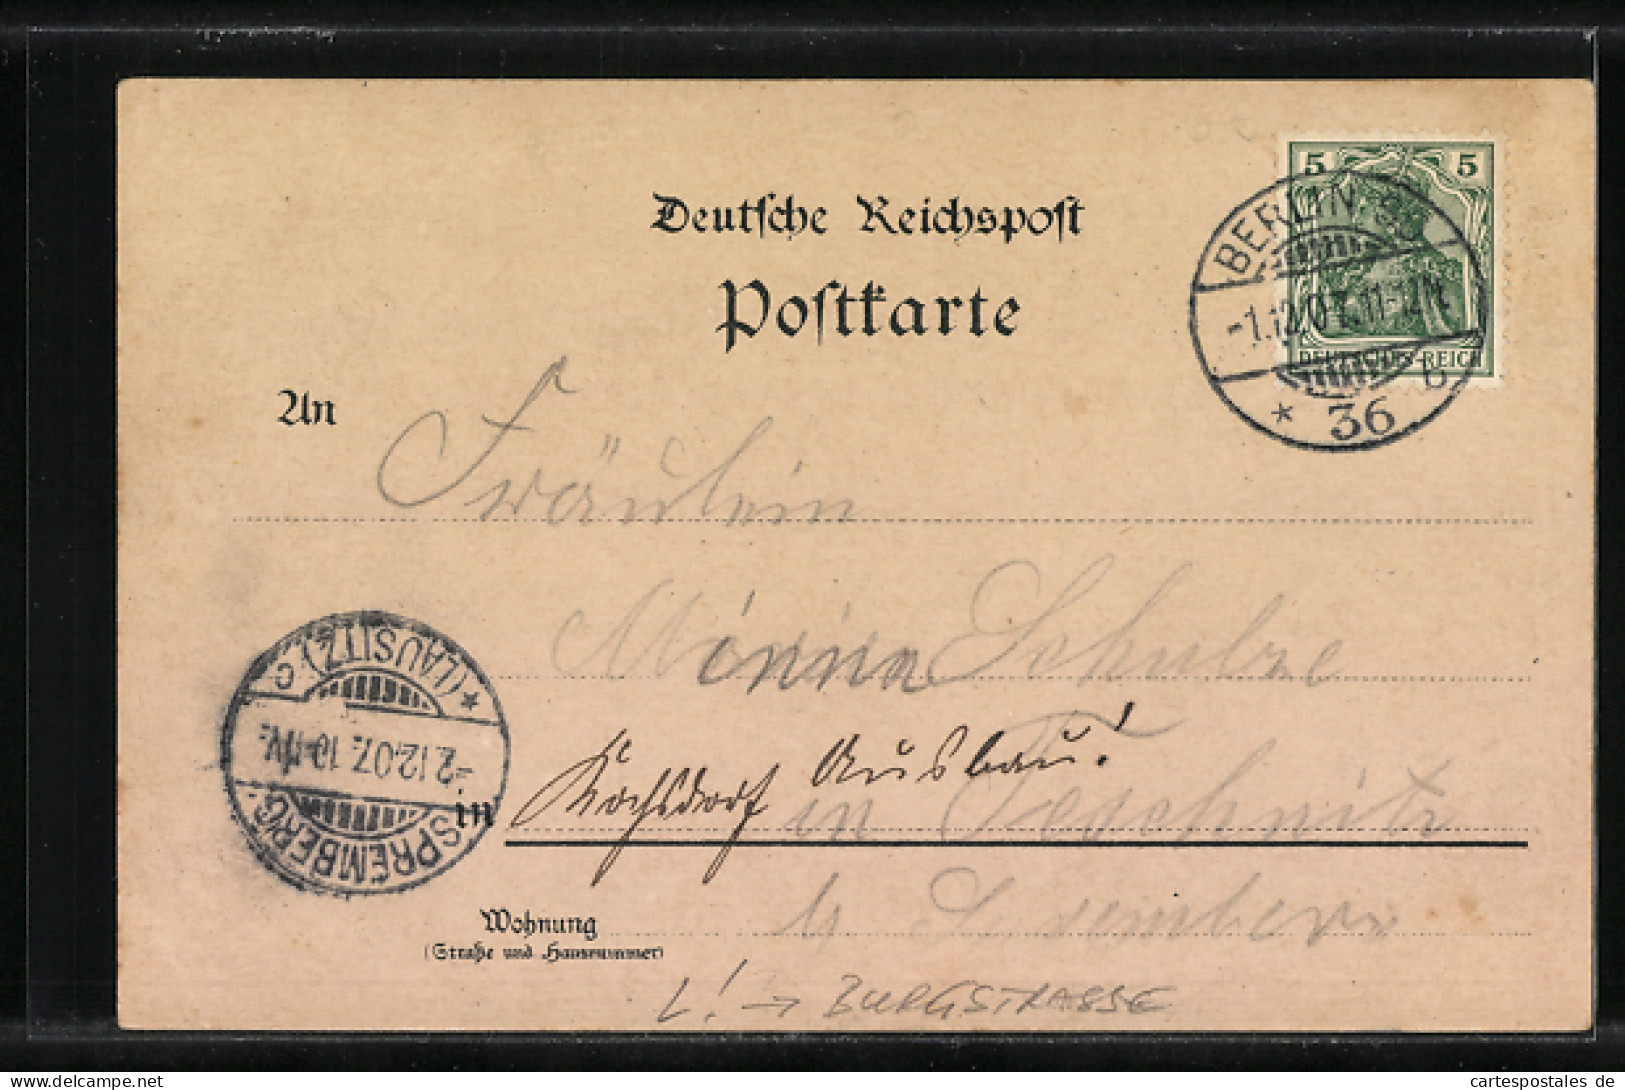 Deutsche Reichspost
Postkarte
5 5
DEUTSCHES REICH
BERLIN S.
-1.12.07.11-12N.
* 36 b
An Fräulein
Minna Schulze
Kochsdorf Ausbau!
in in Teschnitz
Wohnung
(Straße und Hausnummer)
SPREMBERG
-2.12.07. 10-11V.
* (LAUSITZ) C.
L! → BURGSTRASSE
www.cartespostales.de
cartespostales de